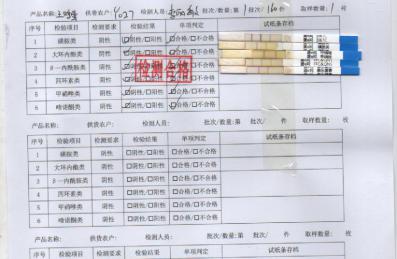 产品名称: 供货农户: Y027 检测人员: 批次/数量:第1批次/160 取样数量:1 枚
序号 检验项目 检测要求 检验结果 单项判定 试纸条存档
1 磺胺类 阴性 ☑阴性/□阳性 ☑合格/□不合格
2 大环内酯类 阴性 ☑阴性/□阳性 ☑合格/□不合格
3 β一内酰胺类 阴性 ☑阴性/□阳性 ☑合格/□不合格
4 四环素类 阴性 ☑阴性/□阳性 ☑合格/□不合格
5 甲硝唑类 阴性 ☑阴性/□阳性 ☑合格/□不合格
6 喹诺酮类 阴性 ☑阴性/□阳性 ☑合格/□不合格
检测合格
产品名称: 供货农户: 检测人员: 批次/数量:第 批次/ 件 取样数量: 枚
序号 检验项目 检测要求 检验结果 单项判定 试纸条存档
1 磺胺类 阴性 □阴性/□阳性 □合格/□不合格
2 大环内酯类 阴性 □阴性/□阳性 □合格/□不合格
3 β一内酰胺类 阴性 □阴性/□阳性 □合格/□不合格
4 四环素类 阴性 □阴性/□阳性 □合格/□不合格
5 甲硝唑类 阴性 □阴性/□阳性 □合格/□不合格
6 喹诺酮类 阴性 □阴性/□阳性 □合格/□不合格
产品名称: 供货农户: 检测人员: 批次/数量:第 批次/ 件 取样数量: 枚
序号 检验项目 检测要求 检验结果 单项判定 试纸条存档
1 磺胺类 阴性 □阴性/□阳性 □合格/□不合格